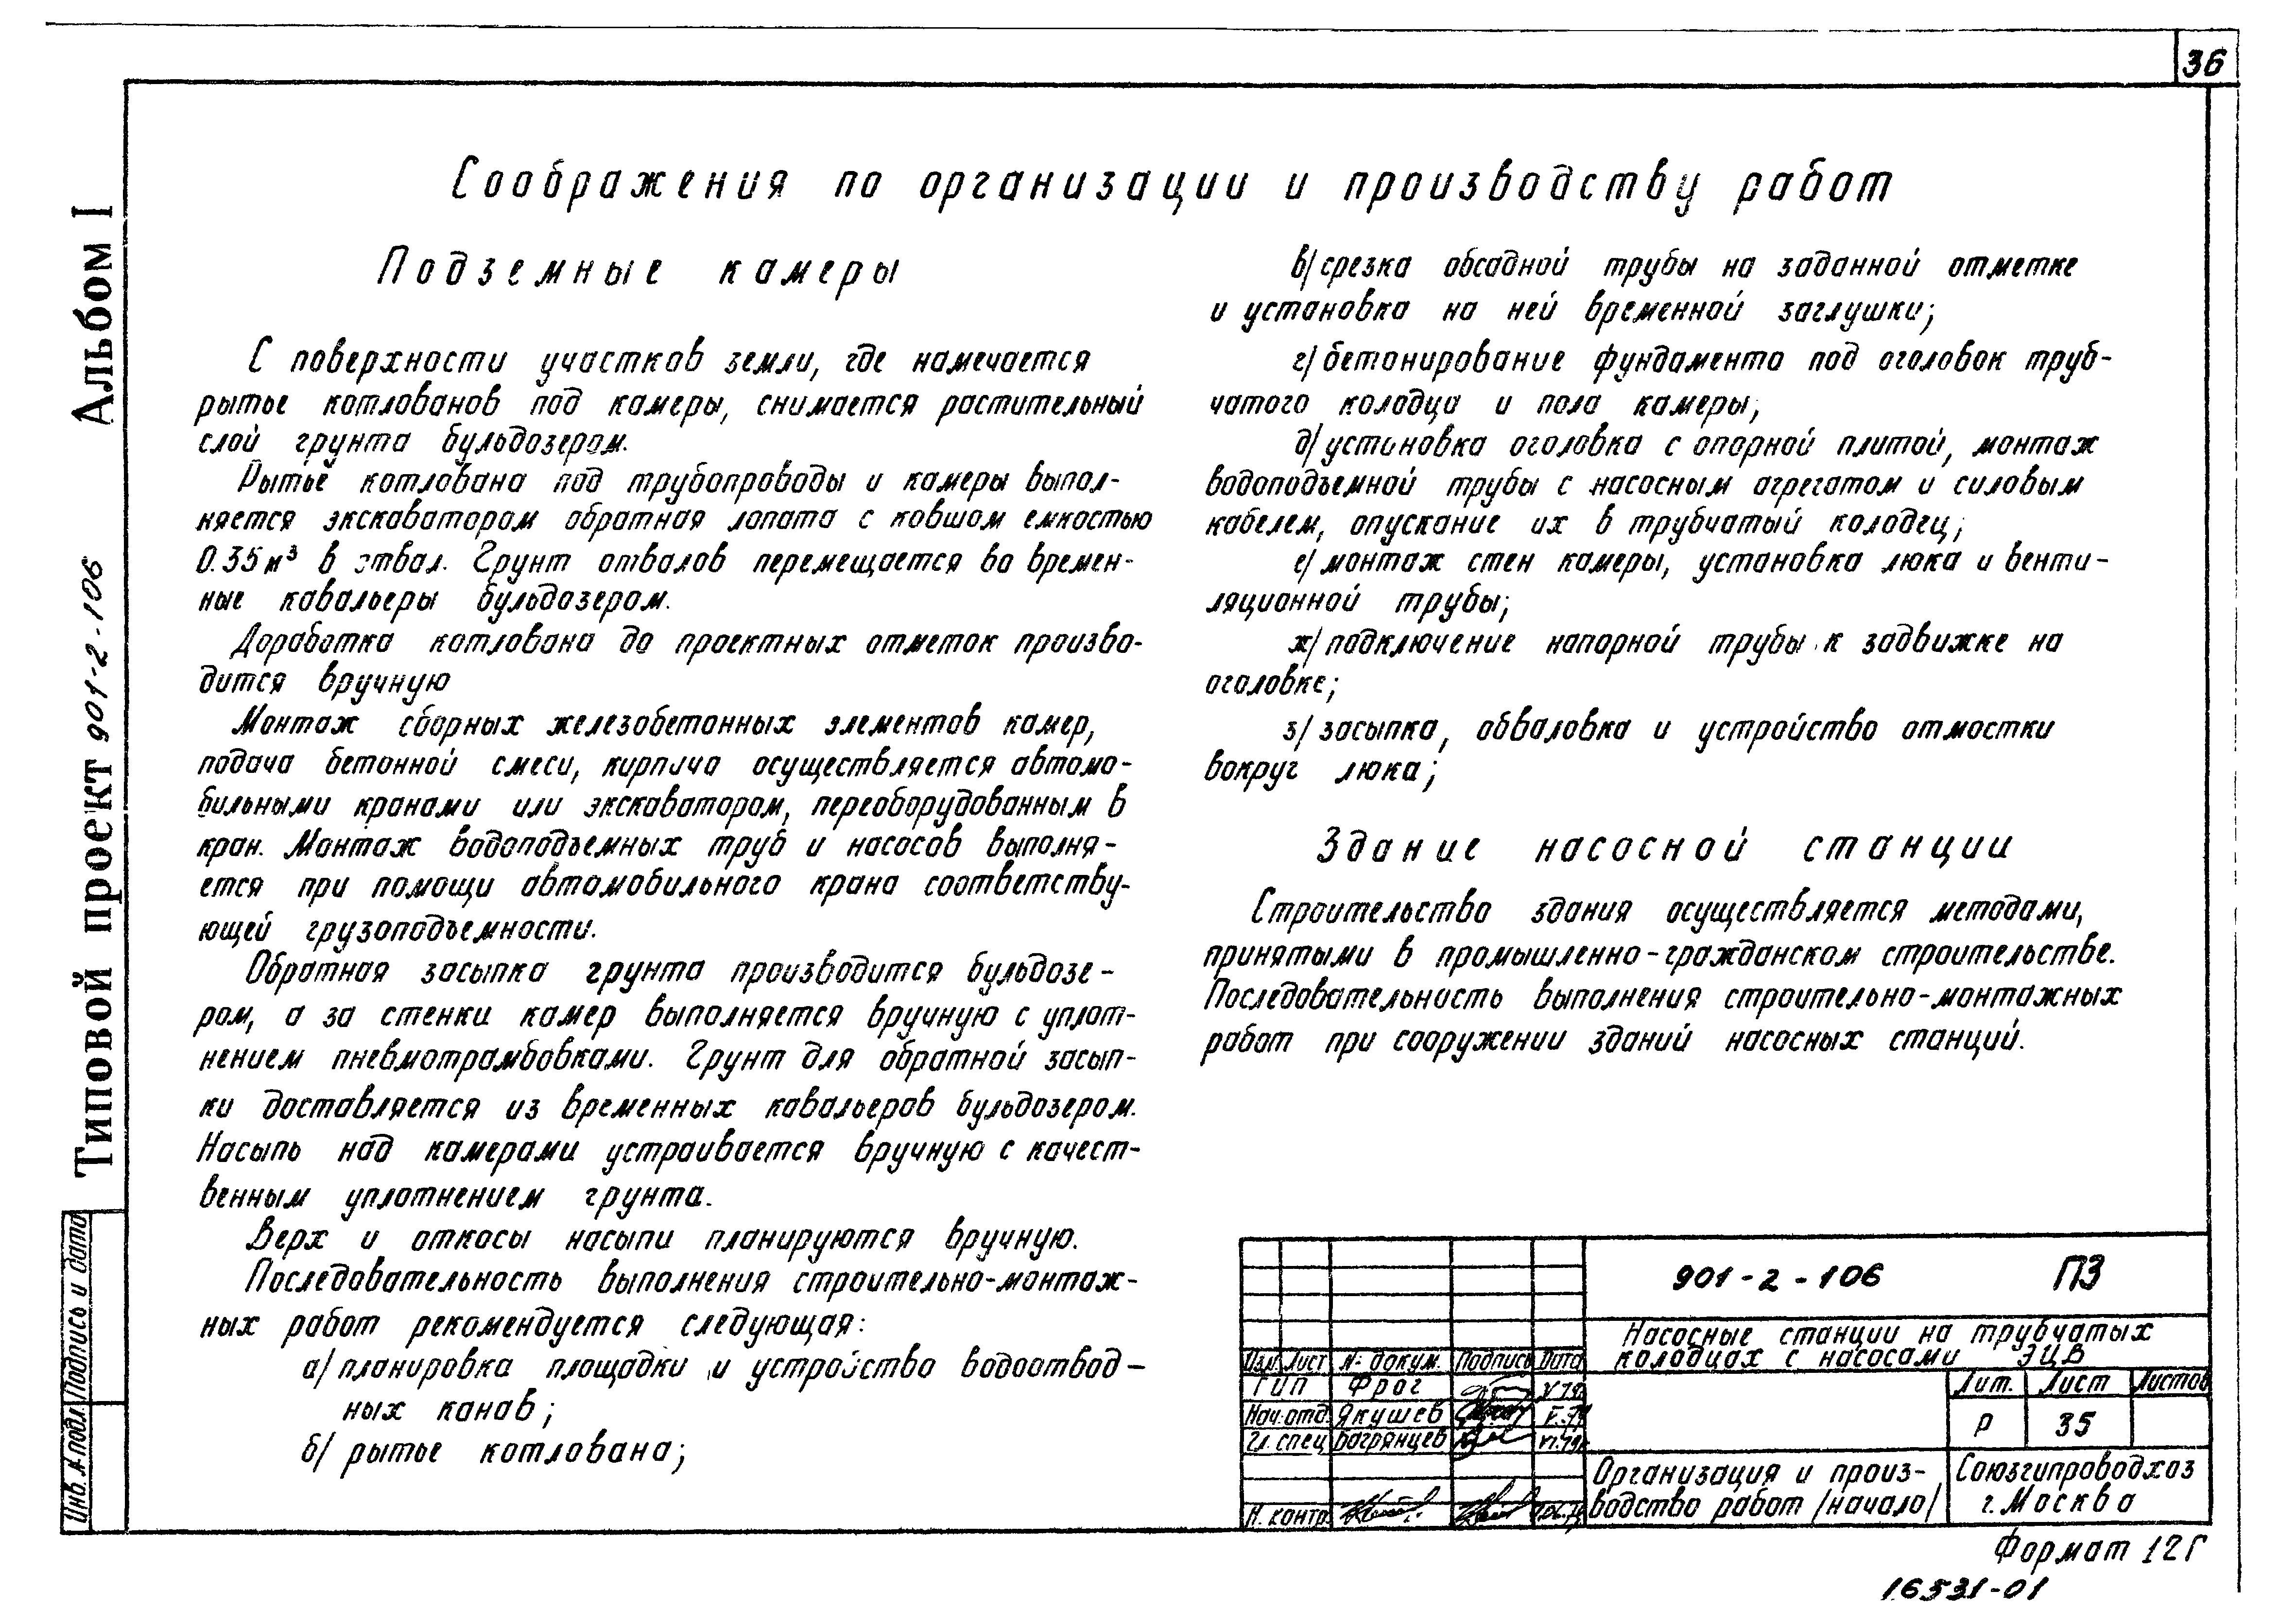 36
Соображения по организации и производству работ
Подземные камеры
С поверхности участков земли, где намечается
рытье котлованов под камеры, снимается растительный
слой грунта бульдозером.
Рытьё котлована под трубопроводы и камеры выпол-
няется экскаватором обратная лопата с ковшом емкостью
0.35м³ в отвал. Грунт отвалов перемещается во времен-
ные кавальеры бульдозером.
Доработка котлована до проектных отметок произво-
дится вручную
Монтаж сборных железобетонных элементов камер,
подача бетонной смеси, кирпича осуществляется автомо-
бильными кранами или экскаватором, переоборудованным в
кран. Монтаж водоподъемных труб и насосов выполня-
ется при помощи автомобильного крана соответству-
ющей грузоподъемности.
Обратная засыпка грунта производится бульдозе-
ром, а за стенки камер выполняется вручную с уплот-
нением пневмотрамбовками. Грунт для обратной засып-
ки доставляется из временных кавальеров бульдозером.
Насыпь над камерами устраивается вручную с качест-
венным уплотнением грунта.
Верх и откосы насыпи планируются вручную.
Последовательность выполнения строительно-монтаж-
ных работ рекомендуется следующая:
а/ планировка площадки и устройство водоотвод-
ных канав;
б/ рытье котлована;
в/ срезка обсадной трубы на заданной отметке
и установка на ней временной заглушки;
г/ бетонирование фундамента под оголовок труб-
чатого колодца и пола камеры;
д/ установка оголовка с опорной плитой, монтаж
водоподъемной трубы с насосным агрегатом и силовым
кабелем, опускание их в трубчатый колодец;
е/ монтаж стен камеры, установка люка и венти-
ляционной трубы;
ж/ подключение напорной трубы к задвижке на
оголовке;
з/ засыпка, обваловка и устройство отмостки
вокруг люка;
Здание насосной станции
Строительство здания осуществляется методами,
принятыми в промышленно-гражданском строительстве.
Последовательность выполнения строительно-монтажных
работ при сооружении зданий насосных станций.
Альбом I
Типовой проект 901-2-106
Подпись и дата
Инв. № подл.
901-2-106 ПЗ
Насосные станции на трубчатых
колодцах с насосами ЭЦВ
Изм. Лист № докум. Подпись Дата
ГИП Фрог
Нач. отд. Якушев
Гл. спец Багрянцев
Н. контр.
Лит. Лист Листов
Р 35
Организация и произ-
водство работ /начало/
Союзгипроводхоз
г. Москва
Формат 12Г
16531-01